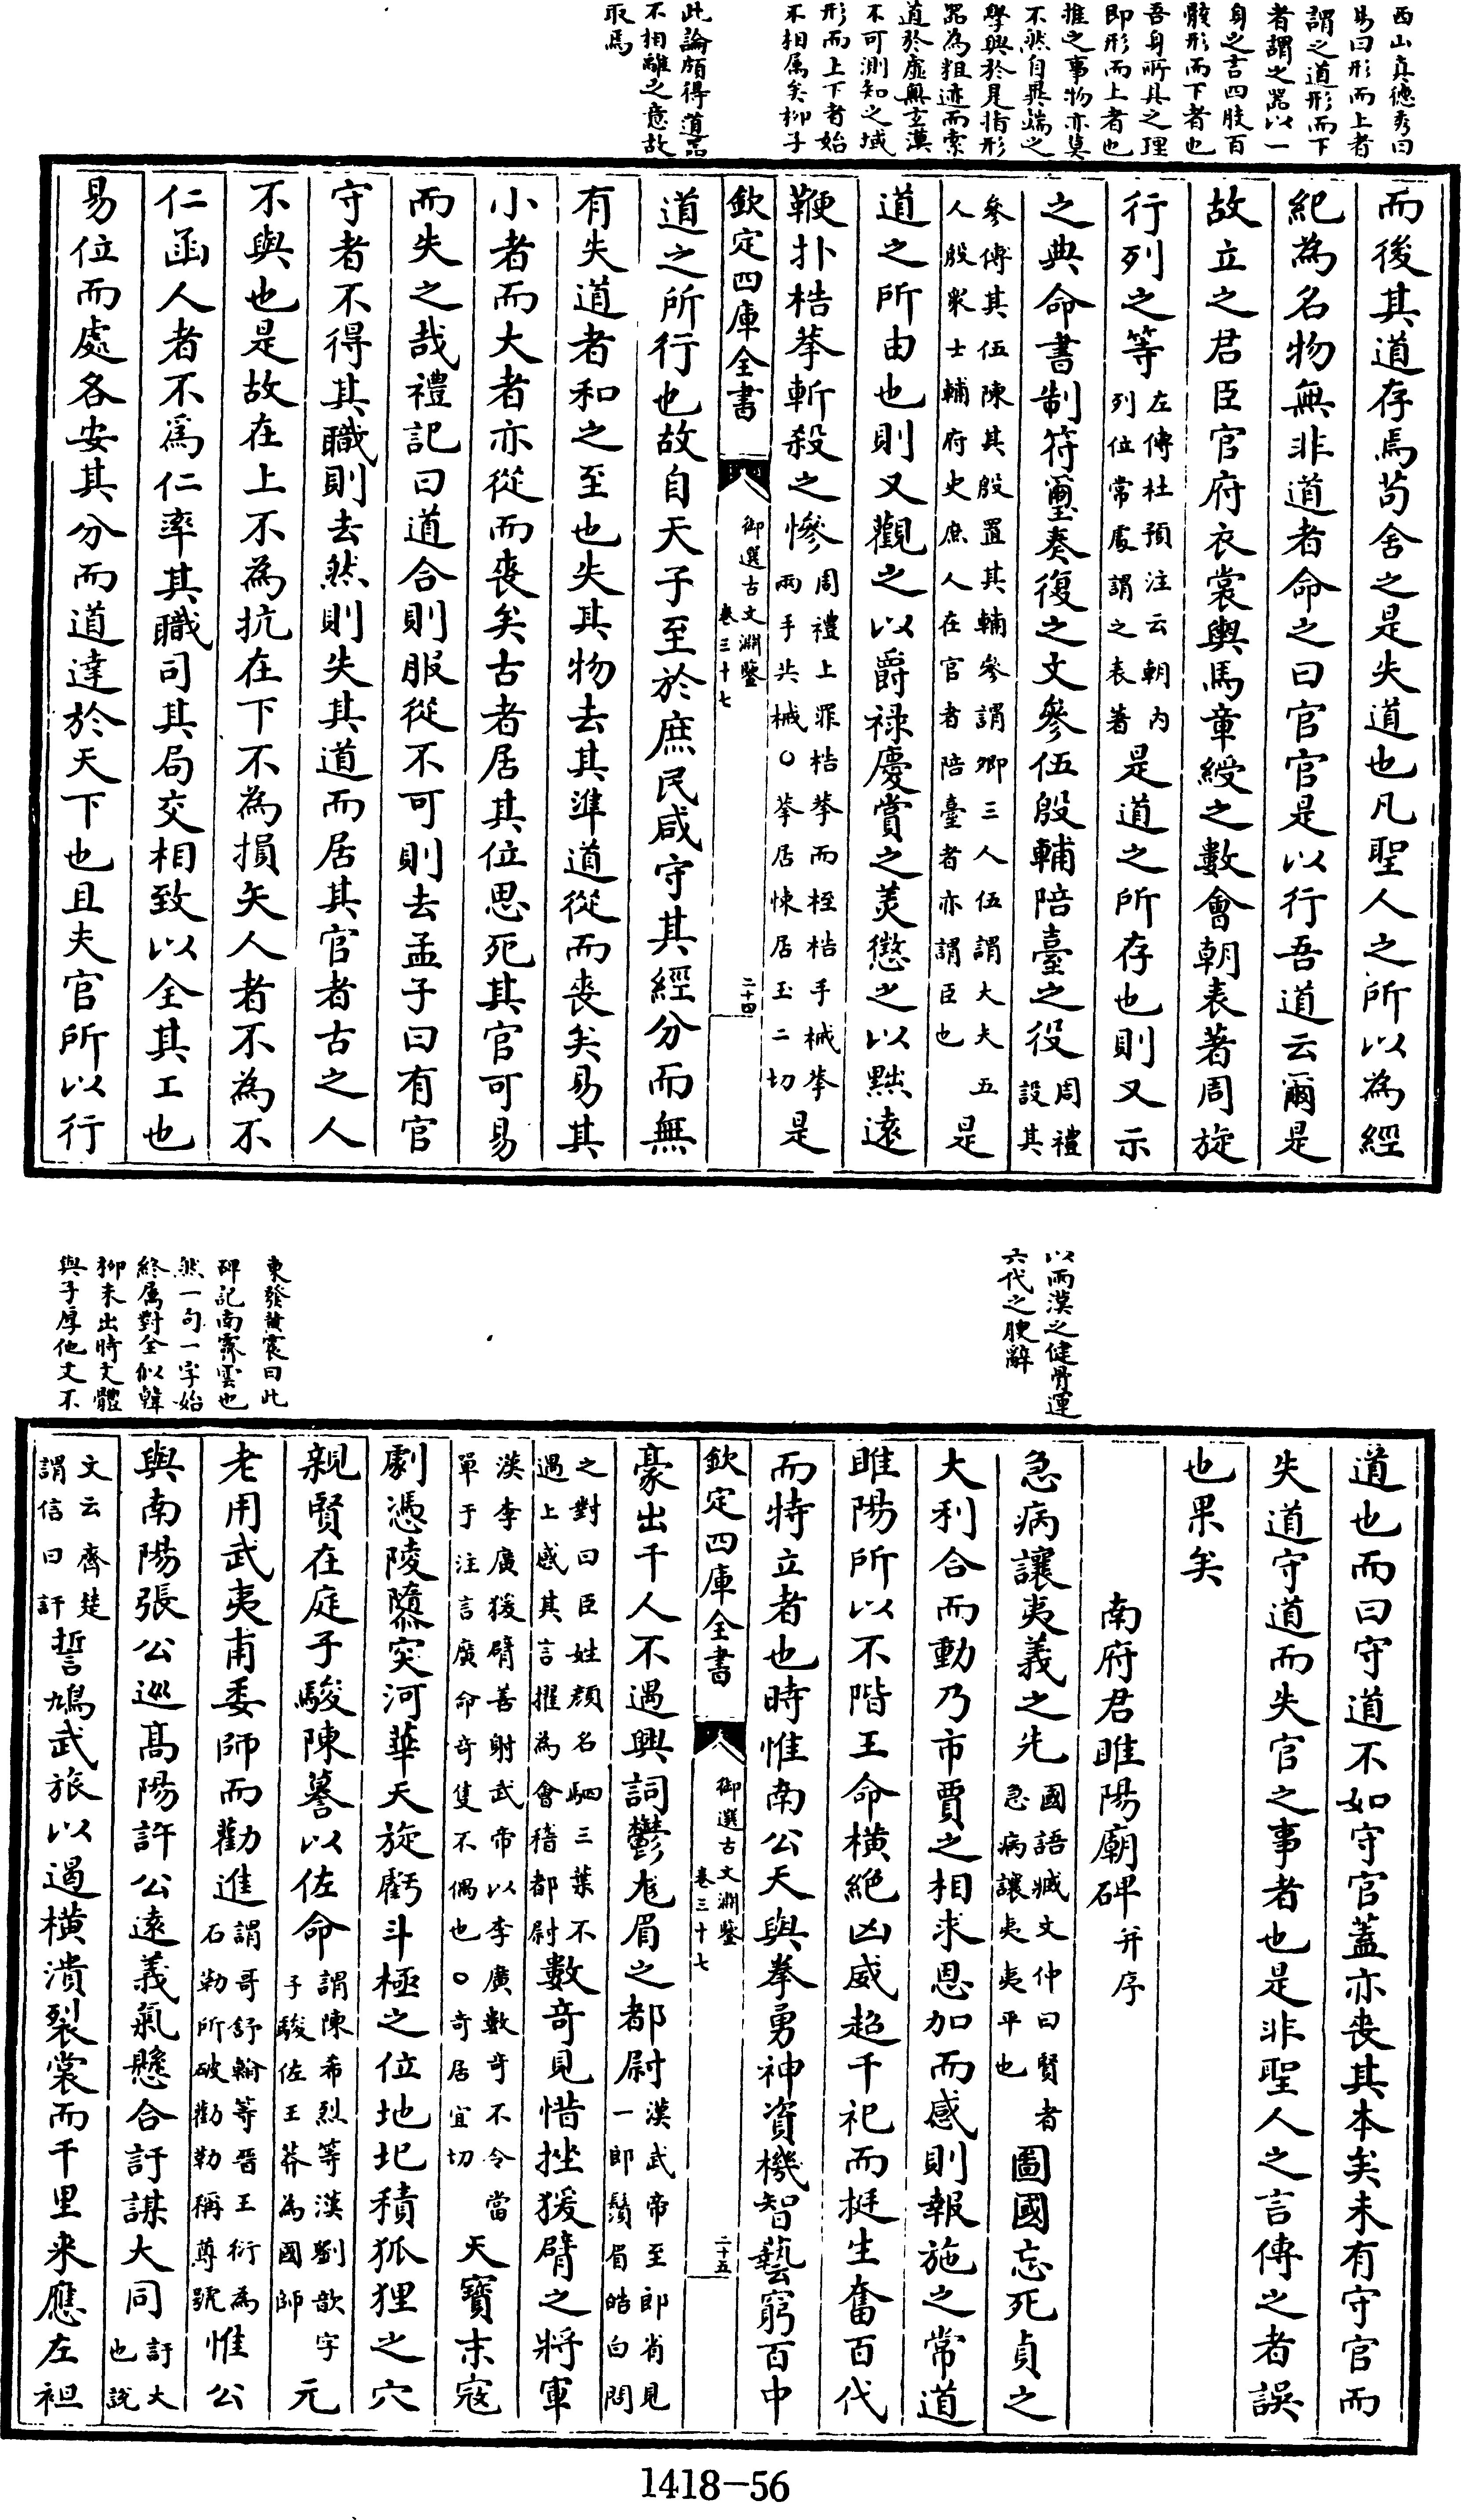 西山真徳秀曰
易曰形而上者
謂之道形而下
者謂之器以一
身之言四肢百
骸形而下者也
吾身所具之理
即形而上者也
推之事物亦莫
不然自異端之
學興於是指形
器為粗迹而索
道於虚無玄漠
不可測知之域
形而上下者始
不相属矣柳子
此論頗得道器
不相離之意故
取焉
而後其道存焉茍舍之是失道也凡聖人之所以為經
紀為名物無非道者命之曰官官是以行吾道云爾是
故立之君臣官府衣裳輿馬章綬之數會朝表著周旋
行列之等左傳杜預注云朝内列位常處謂之表著是道之所存也則又示
之典命書制符璽奏復之文參伍殷輔陪臺之役周禮設其
參傅其伍陳其殷置其輔參謂卿三人伍謂大夫五人殷衆士輔府史庶人在官者陪臺者亦謂臣也是
道之所由也則又觀之以爵禄慶賞之美懲之以黜遠
鞭扑梏拲斬殺之慘周禮上罪梏拲而桎梏手械拲兩手共械○拲居悚居玉二切是
欽定四庫全書 御選古文淵鑒 卷三十七 二十四
道之所行也故自天子至於庶民咸守其經分而無
有失道者和之至也失其物去其準道從而喪矣易其
小者而大者亦從而喪矣古者居其位思死其官可易
而失之哉禮記曰道合則服從不可則去孟子曰有官
守者不得其職則去然則失其道而居其官者古之人
不與也是故在上不為抗在下不為損矢人者不為不
仁函人者不爲仁率其職司其局交相致以全其工也
易位而處各安其分而道達於天下也且夫官所以行
以兩漢之健骨運
六代之腴辭
東發黄震曰此
碑記南霽雲也
然一句一字始
終属對全似韓
柳未出時文體
與子厚他文不
道也而曰守道不如守官蓋亦喪其本矣未有守官而
失道守道而失官之事者也是非聖人之言傳之者誤
也果矣
南府君睢陽廟碑并序
急病讓夷義之先國語臧文仲曰賢者急病讓夷夷平也圖國忘死貞之
大利合而動乃市賈之相求恩加而感則報施之常道
睢陽所以不階王命横絶凶威超千祀而挺生奮百代
而特立者也時惟南公天與拳勇神資機智藝窮百中
欽定四庫全書 御選古文淵鑒 卷三十七 二十五
豪出千人不遇興詞鬱尨眉之都尉漢武帝至郎省見一郎鬚眉皓白問
之對曰臣姓顔名駟三葉不遇上感其言擢為會稽都尉數奇見惜挫猨臂之將軍
漢李廣猨臂善射武帝以李廣數奇不令當單于注言廣命奇隻不偶也○奇居宜切天寶末寇
劇憑陵隳突河華天旋虧斗極之位地圮積狐狸之穴
親賢在庭子駿陳謩以佐命謂陳希烈等漢劉歆字子駿佐王莽為國師元
老用武夷甫委師而勸進謂哥舒翰等晉王衍為石勒所破勸勒稱尊號惟公
與南陽張公巡髙陽許公遠義氣懸合訏謀大同訏大也說
文云齊楚謂信曰訏誓鳩武旅以遏横潰裂裳而千里来應左袒
1418-56